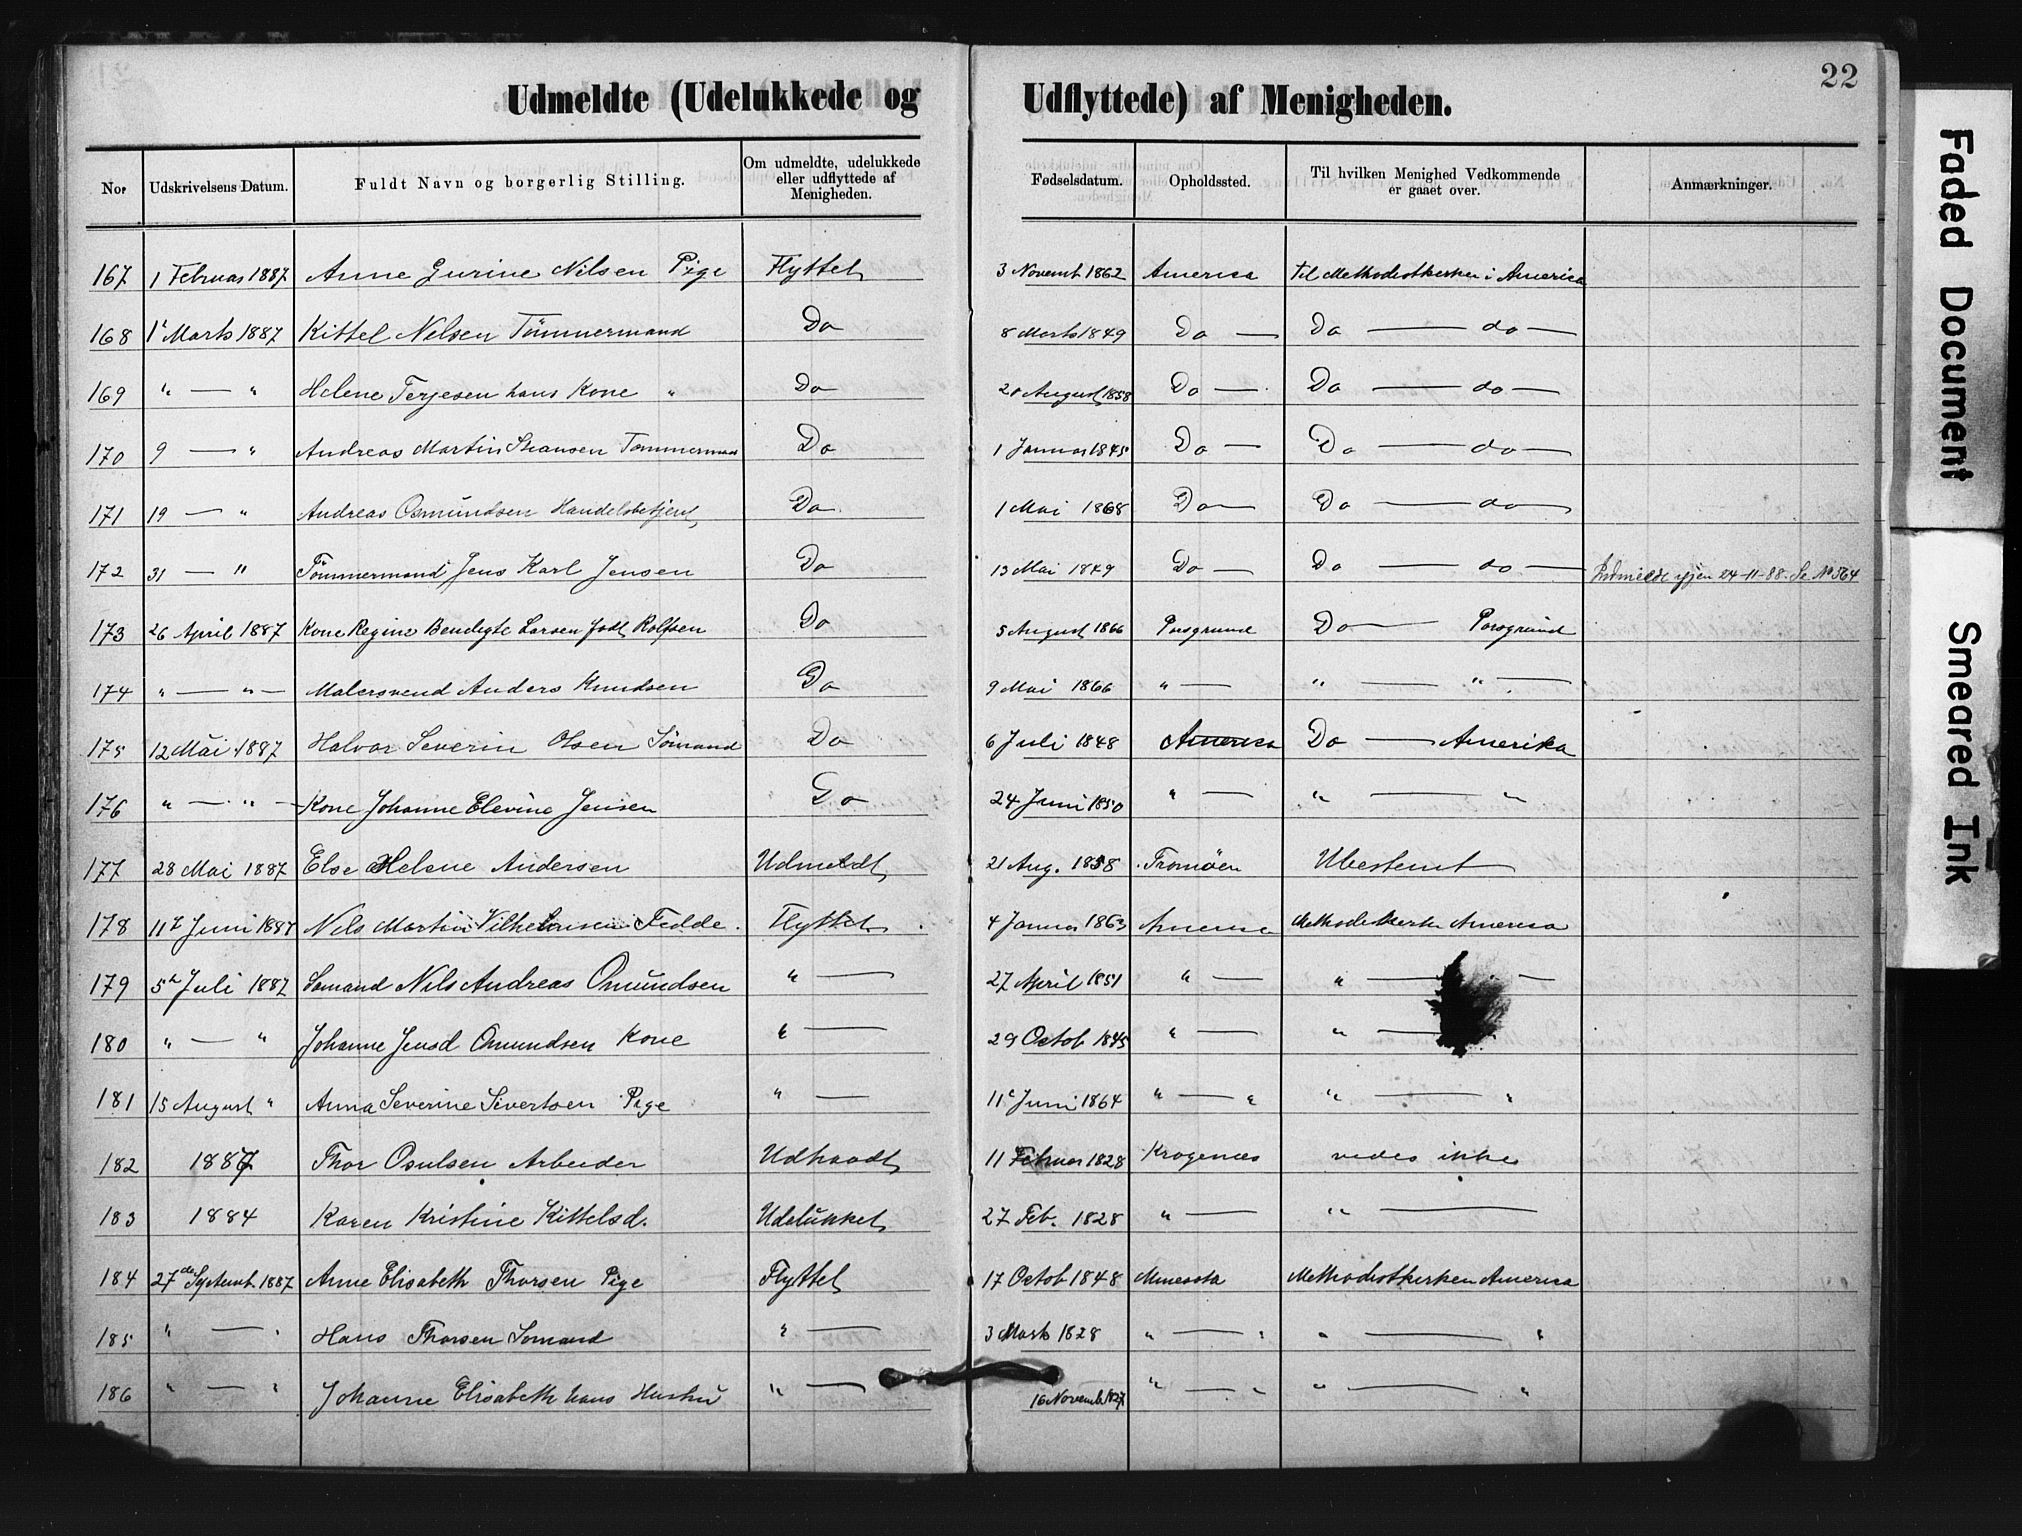 22
Udmeldte (Udelukkede og Udflyttede) af Menigheden.
No. Udskrivelsens Datum. Fuldt Navn og borgerlig Stilling. Om udmeldte, udelukkede eller udflyttede af Menigheden. Fødselsdatum. Opholdssted. Til hvilken Menighed Vedkommende er gaaet over. Anmærkninger.
167 1 Februar 1887 Anne Gurine Nilsen Pige Flyttet 3 Novemb 1862 America til Methodistkirken i America
168 1 Marts 1887 Kittel Nelsen Tömmermand Do 8 Marts 1849 Do — Do — do —
169 " — " Helene Terjesen hans Kone " Do 20 August 1858 Do — Do — do —
170 9 — " Andreas Martin Tommermand Do 1 Januar 1845 Do — Do — do —
171 19 — " Andreas Osmundsen Handelsbetjent Do 1 Mai 1868 Do — Do — do —
172 31 — " Tömmermand Jens Karl Jensen Do 13 Mai 1849 Do — Do — do — Indmeldt igjen 24-11-88. Se No 564
173 26 April 1887 Kone Regine Bendigte Larsen født Rolfsen Do 5 August 1866 Porsgrund Do — Porsgrund
174 " — " — Malersvend Anders Knudsen Do 9 Mai 1866 " — " — " —
175 12 Mai 1887 Halvor Severin Olsen Sömand Do 6 Juli 1848 America Do — Amerika
176 " — " — Kone Johanne Elevine Jensen Do 24 Juni 1850 " — " — "
177 28 Mai 1887 Else Helene Andersen Udmeldt 21 Aug. 1858 Tromöen Ubestemt
178 11 Juni 1887 Nils Martin Vilhelmsen Fedde. Flyttet 4 Januar 1863 America Methodistkerke America
179 5 Juli 1887 Somand Nils Andreas Omundsen " — 27 April 1851 " — " — —
180 " — " Johanne Jensd Omundsen Kone " — 29 Octob 1845 " — " —
181 15 August " Anna Severine Sivertsen Pige " — 11 Juni 1864 " — " " — "
182 1887 Thor Osulsen Arbeider Udtraadt 11 Februar 1828 Krogenes vedes ikke
183 1884 Karen Kristine Kittelsd. Udelukket 27 Feb. 1828 " — " —
184 27de Septemb 1887 Anne Elisabeth Thorsen Pige Flyttet 17 Octob 1848 Minesota Methodistkerken America
185 " — " Hans Thorsen Somand " — 3 Marts 1828 " — " " — "
186 " — " Johanne Elisabeth hans Hustru " — 16 Novemb 1827 " — " " — "
Faded Document
Smeared Ink